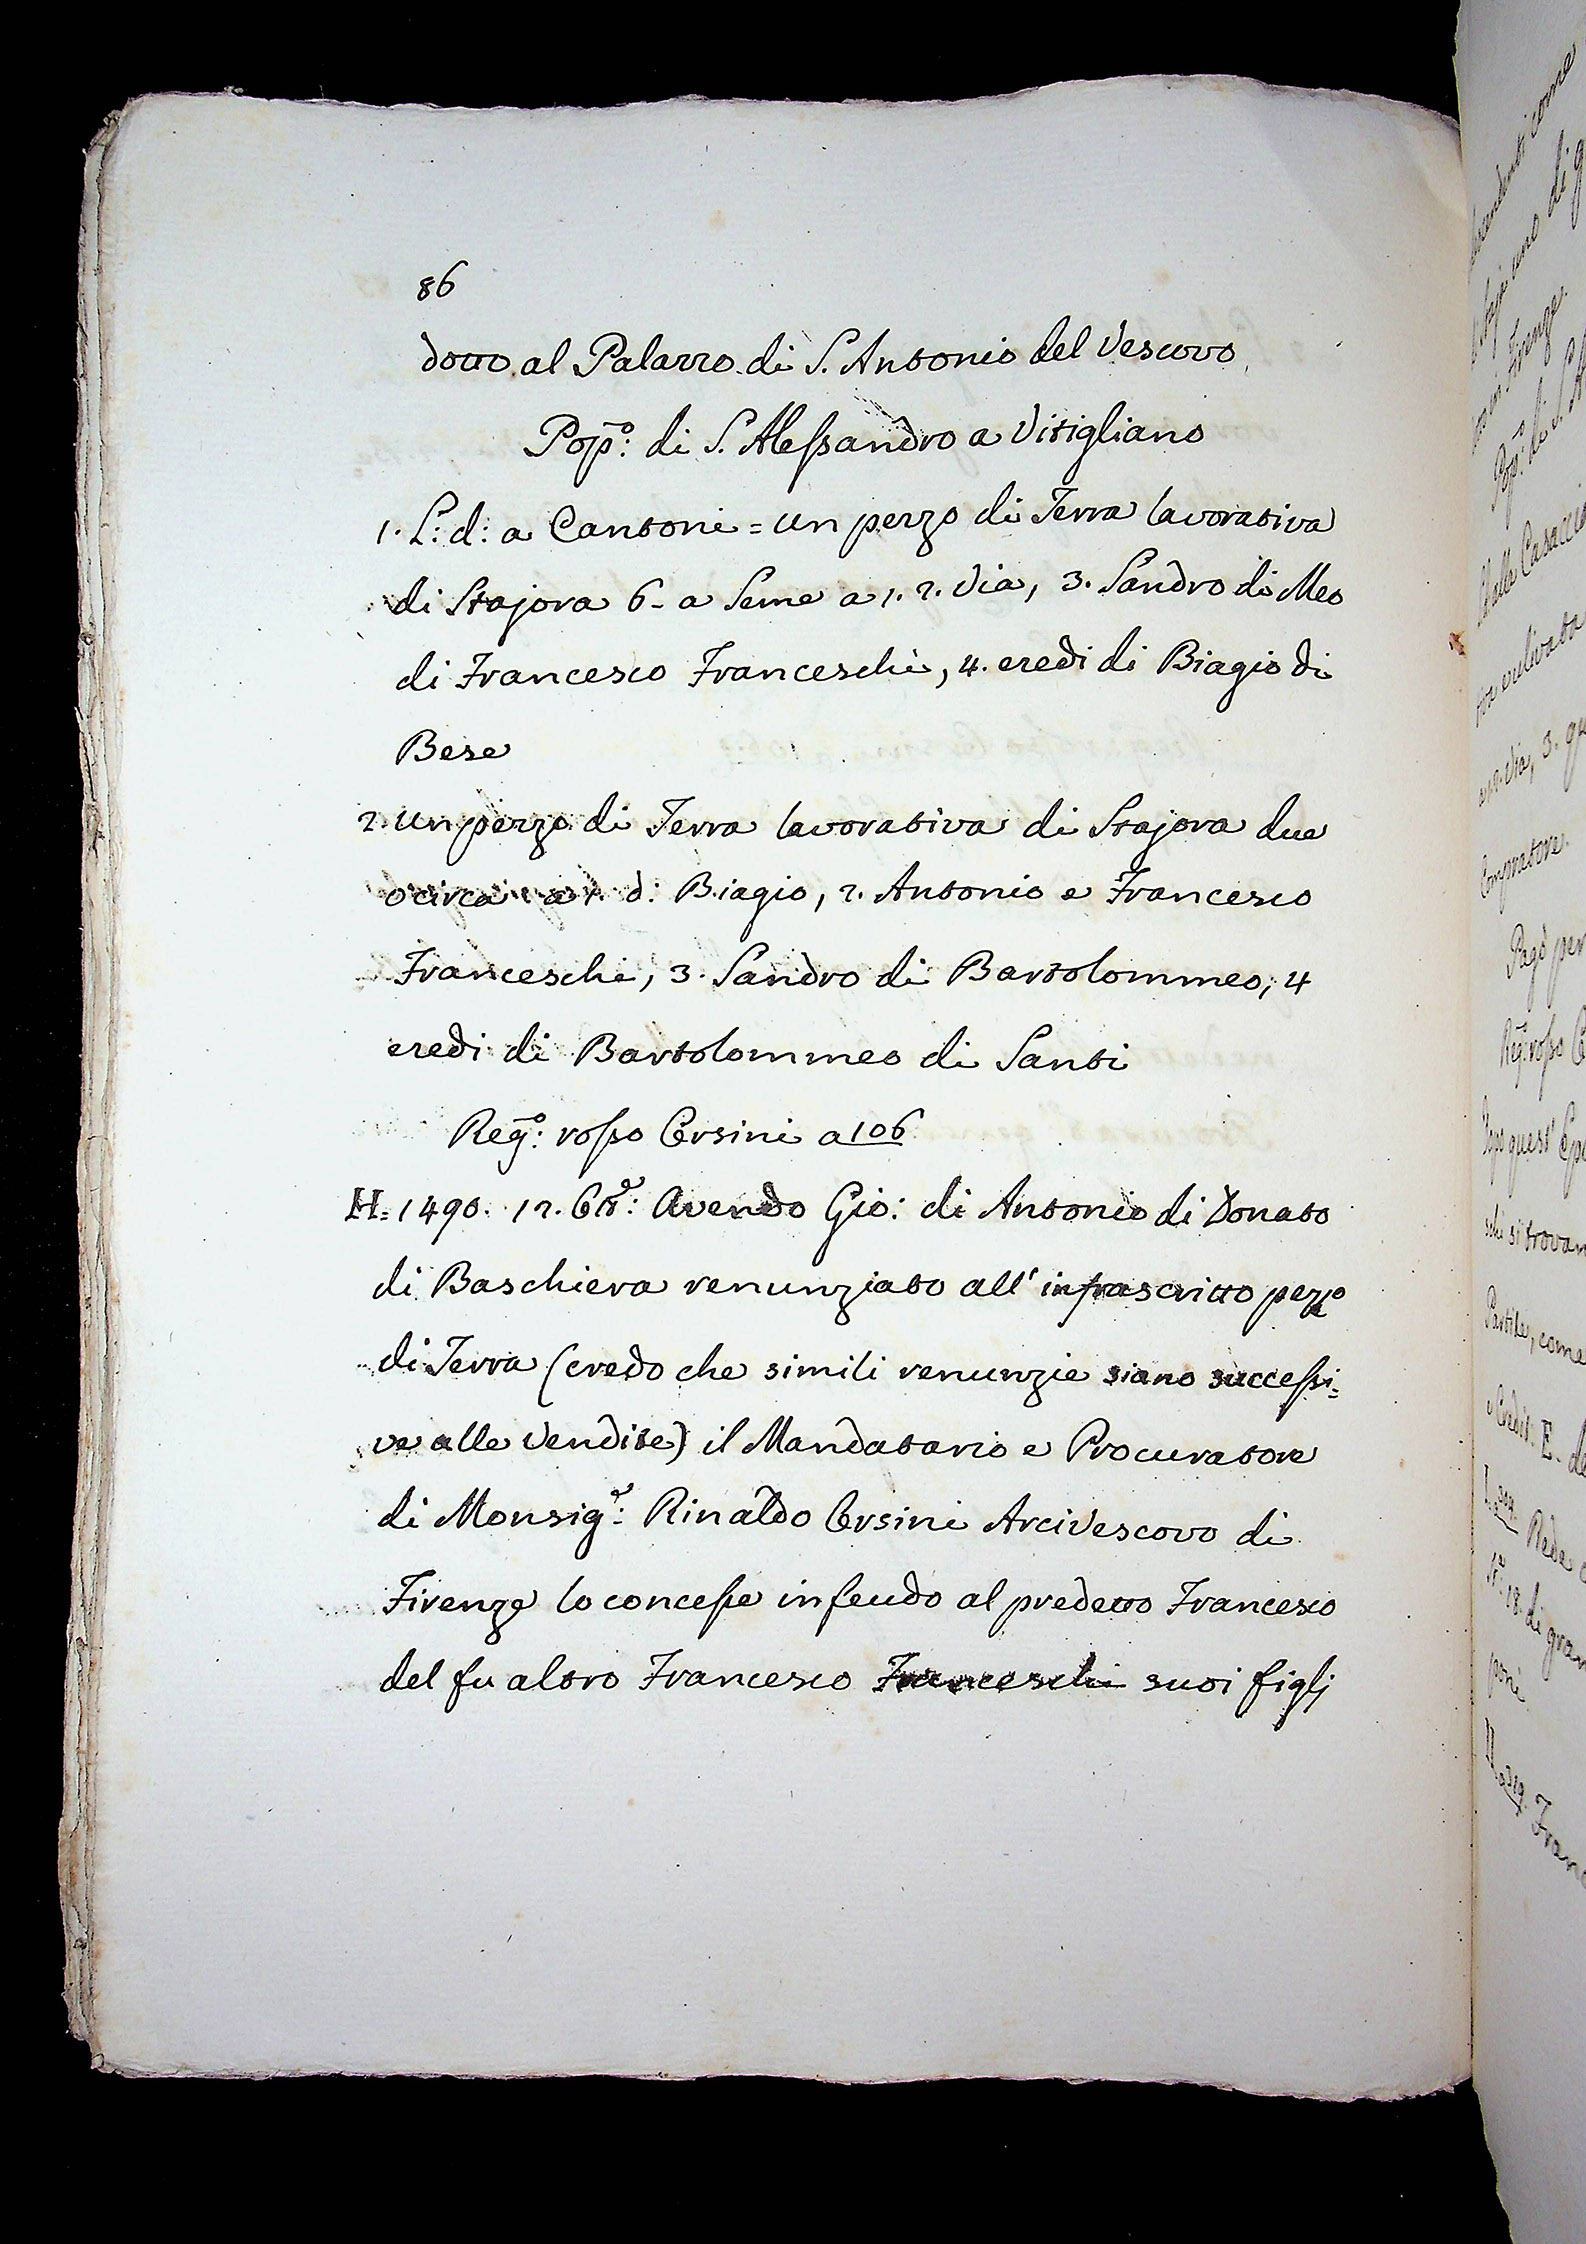 86
dotto al Palazzo di S. Antonio del Vescovo
Pop.º: di S. Alessandro a Vitigliano
1. L: d: a Cantoni = un pezzo di Terra lavorativa
di Stajora 6 - a Seme a 1. 2. Via, 3. Sandro di Meo
di Francesco Franceschi, 4. eredi di Biagio di
Bese
2. un pezzo di Terra lavorativa di Stajora due
o circa a 1. d: Biagio, 2. Antonio e Francesco
Franceschi, 3. Sandro di Bartolommeo, 4
eredi di Bartolommeo di Santi
Reg.º: rosso Orsini a 106
H = 1490. 12. Avendo Gio: di Antonio di Donato
di Baschiera renunziato all' infrascritto pezzo
di Terra (credo che simili renunzie siano successi=
ve alle vendite) il Mandatario e Procuratore
di Monsig.e: Rinaldo Orsini Arcivescovo di
Firenze lo concesse in feudo al predetto Francesco
del fu altro Francesco Franceschi suoi figlj
come
di g
uno
Firenze.
Pop.º: di S.
alla Casaccia
Via, 3.
Compratore.
Pagò per
Reg.º: rosso
quest'
si trovan
Partite, come
E. de
Rede
18. di gran
Fran